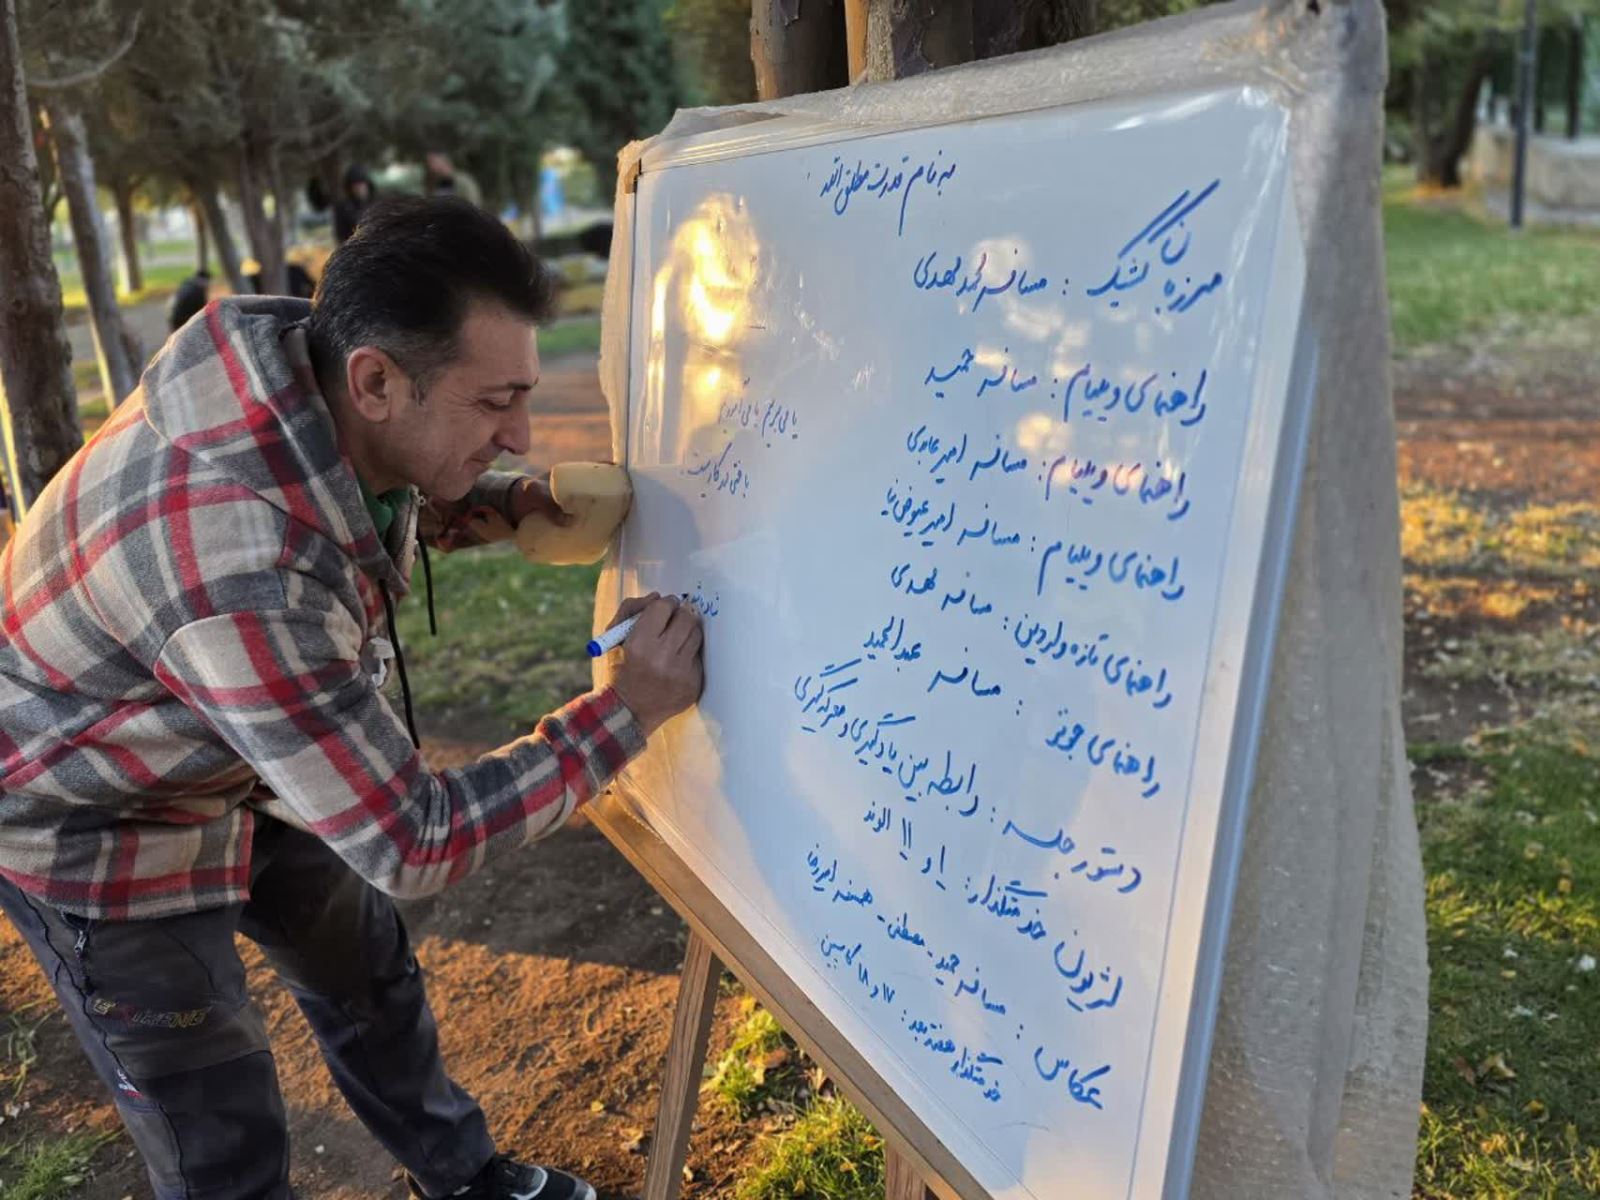 به نام قدرت مطلق الله
مرزبان کشیک : مسافر محمد مهدی
راهنمای ویلیام : مسافر حمید
راهنمای ویلیام : مسافر امیر عابدی
راهنمای ویلیام : مسافر امیر عیوض نیا
راهنمای تازه واردین : مسافر مهدی
راهنمای جونز : مسافر عبدالحمید
دستور جلسه : رابطه بین یادگیری و معرکه گیری
لژیون خدمتگذار : ۱ و ۱۱ الوند
عکاس : مسافر حمید - مصطفی - همسفر امیررضا
خدمتگذار هفته بعد : ۱۷ و ۱۸ کاسپین